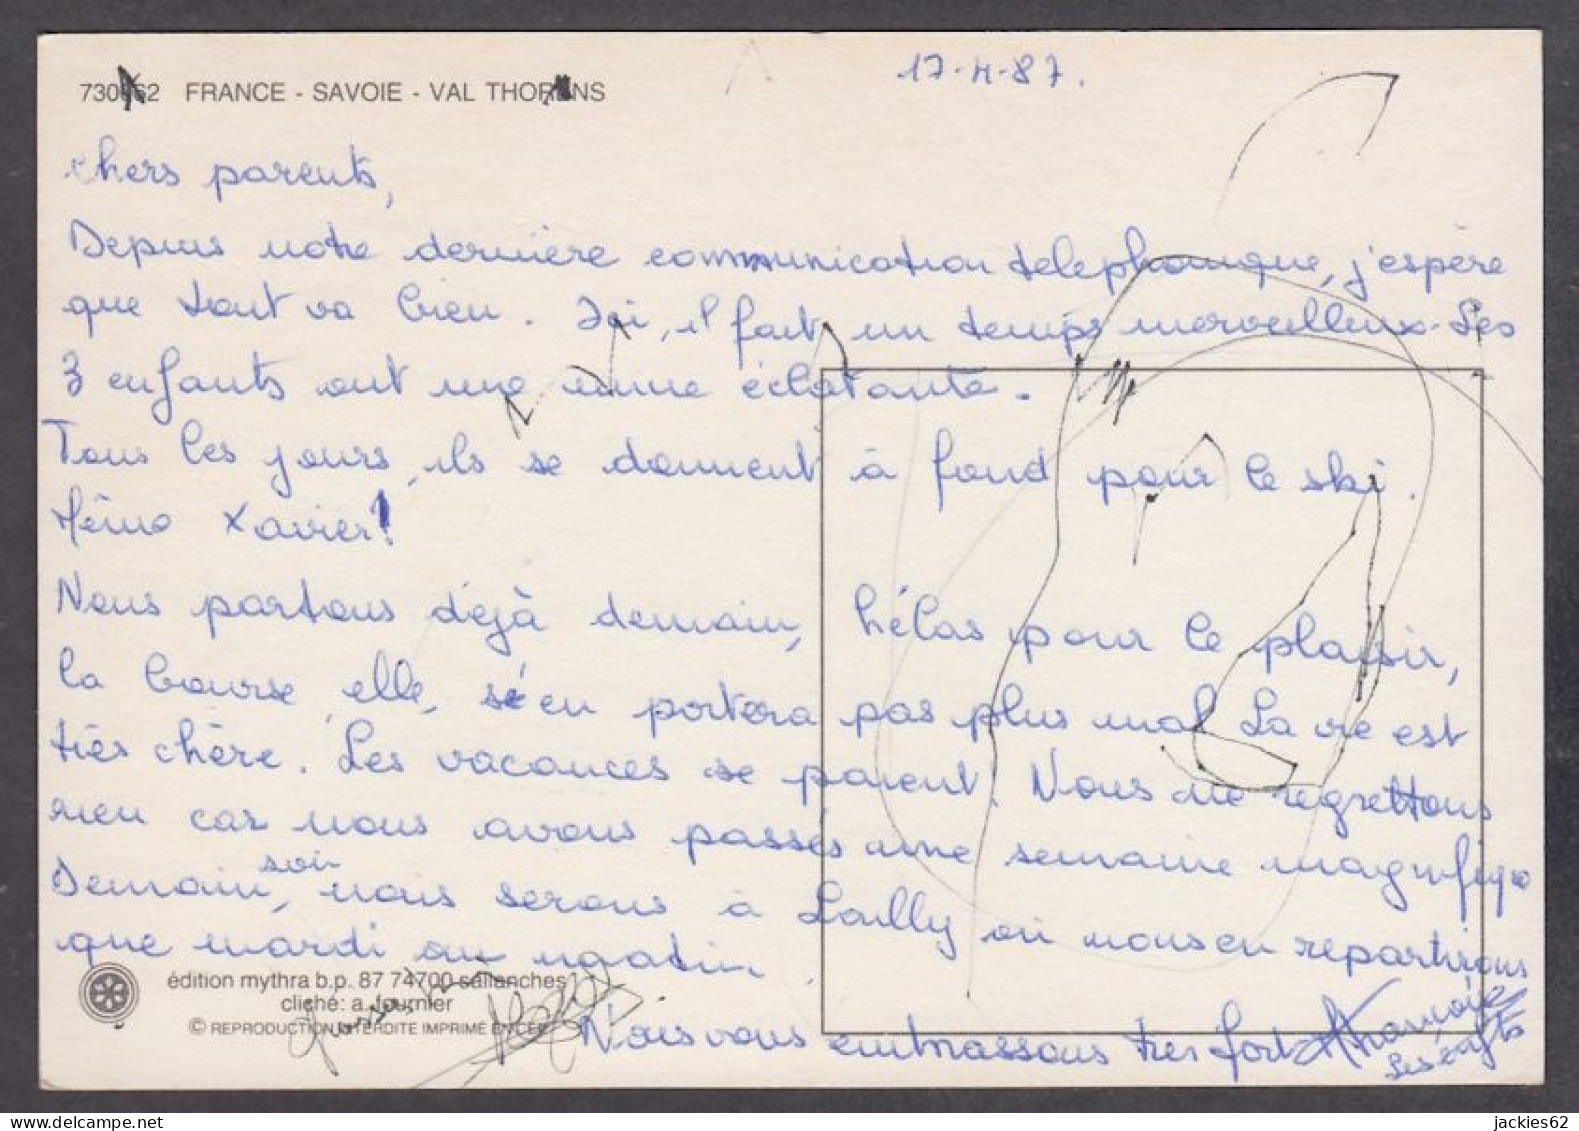 730662 FRANCE - SAVOIE - VAL THORENS
17-4-87.
Chers parents,
Depuis notre dernière communication telephonique, j'espère
que tout va bien. Ici, il fait un temps merveilleux. Les
3 enfants ont une mine éclatante.
Tous les jours, ils se donnent à fond pour le ski.
Même Xavier!
Nous partons déjà demain, hélas pour le plaisir,
la bourse, elle, s'en portera pas plus mal. La vie est
très chère. Les vacances se paient. Nous ne regrettons
rien car nous avons passés une semaine magnifique
Demain soir, nous serons à Lailly où nous en repartirons
que mardi au matin.
édition mythra b.p. 87 74700 sallanches
cliché: a. fournier
© REPRODUCTION INTERDITE IMPRIMÉ EN CEE
Nous vous embrassons très fort Françoise
Les enfts
jackies62